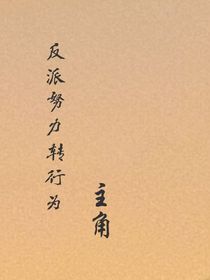 反派努力转行为
主角